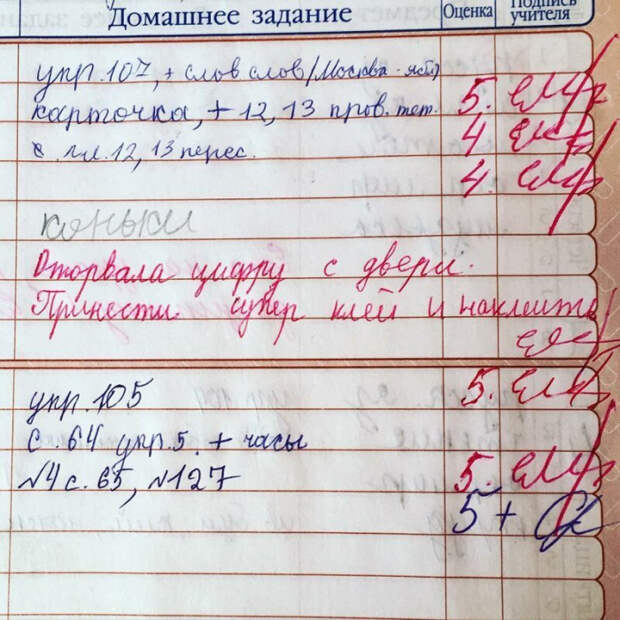 Домашнее задание Оценка Подпись учителя
упр. 107, + слов слов (Москва -
карточка, + 12, 13 пров. тет. 5.
12, 13 перес. 4
4.
коньки
Оторвала цифру с двери.
Принести супер клей и наклеить
упр. 105 5.
с. 64 упр. 5. + часы
№4 с. 65, №127 5.
5+